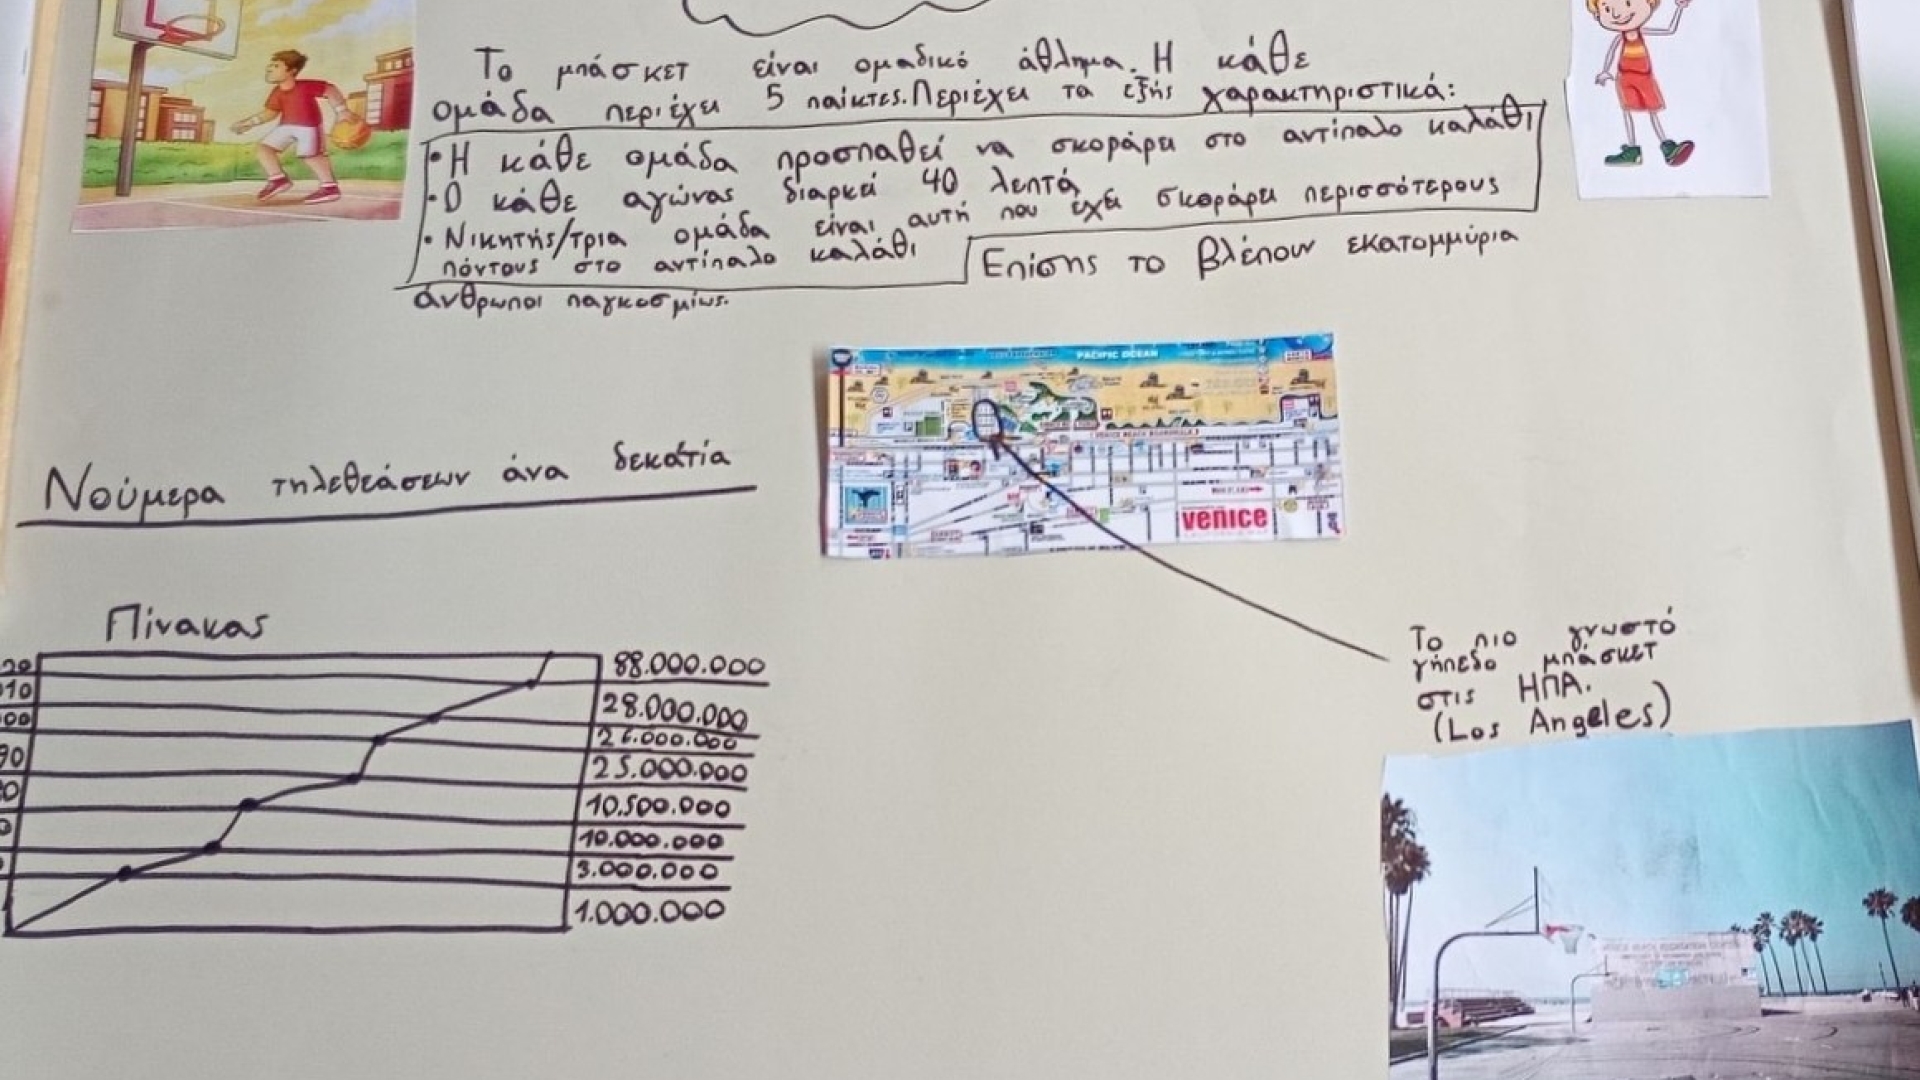 Το μπάσκετ είναι ομαδικό άθλημα. Η κάθε
ομάδα περιέχει 5 παίκτες. Περιέχει τα εξής χαρακτηριστικά:
• Η κάθε ομάδα προσπαθεί να σκοράρει στο αντίπαλο καλάθι
• Ο κάθε αγώνας διαρκεί 40 λεπτά
• Νικητής/τρια ομάδα είναι αυτή που έχει σκοράρει περισσότερους
πόντους στο αντίπαλο καλάθι
Επίσης το βλέπουν εκατομμύρια
άνθρωποι παγκοσμίως.
PACIFIC OCEAN
VENICE BEACH BOARDWALK
venice
Νούμερα τηλεθεάσεων άνα δεκατία
Πίνακας
88.000.000
28.000.000
26.000.000
25.000.000
10.500.000
10.000.000
3.000.000
1.000.000
Το πιο γνωστό
γήπεδο μπάσκετ
στις ΗΠΑ.
(Los Angeles)